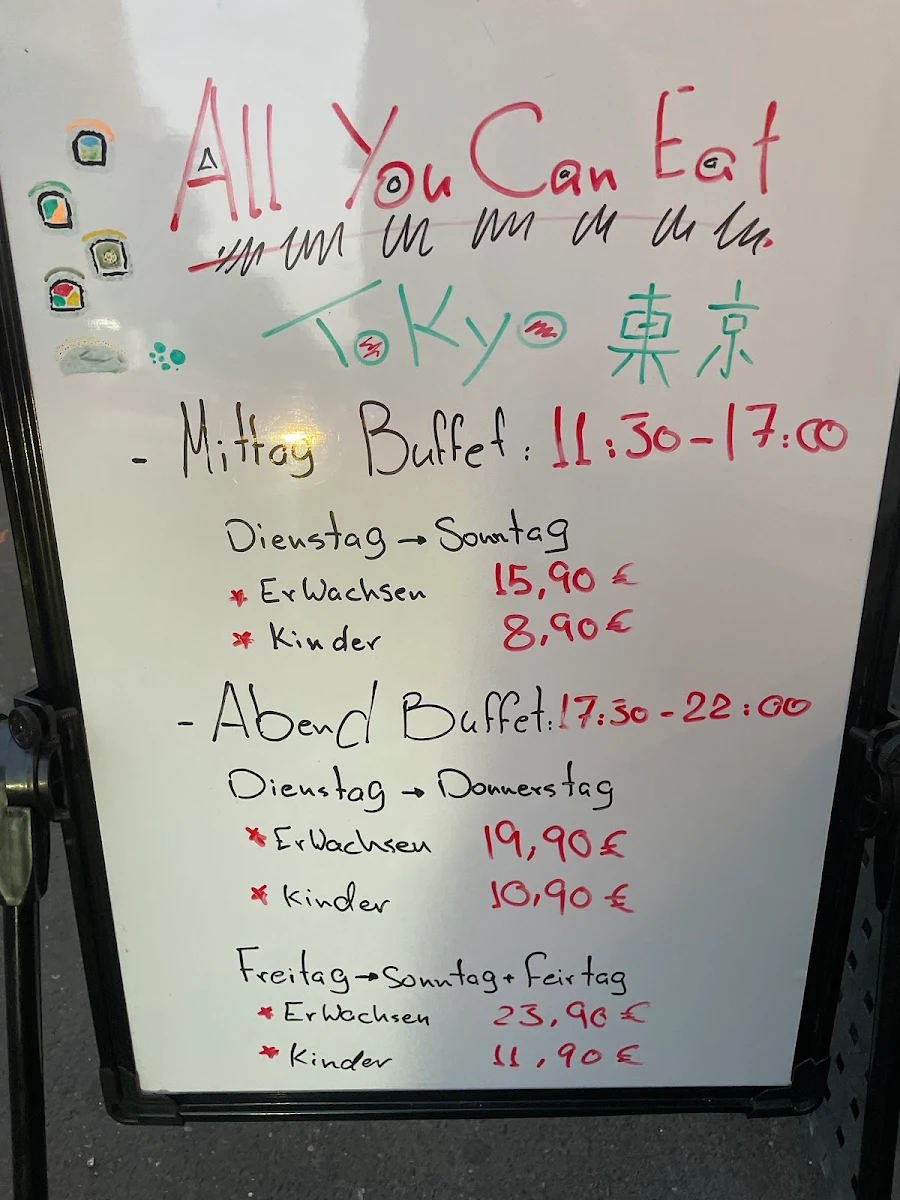 All You Can Eat
Tokyo 東京
- Mittag Buffet: 11:30-17:00
Dienstag → Sonntag
* ErWachsen 15,90 €
* Kinder 8,90 €
- Abend Buffet: 17:30-22:00
Dienstag → Donnerstag
* ErWachsen 19,90 €
* Kinder 10,90 €
Freitag → Sonntag + Feirtag
* ErWachsen 23,90 €
* Kinder 11,90 €